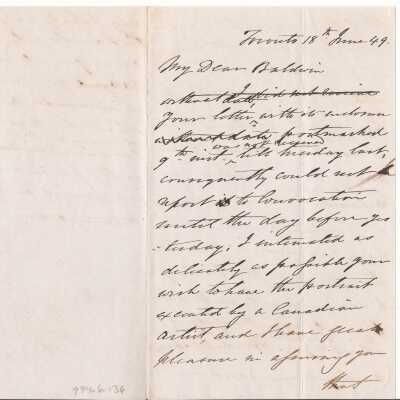 Toronto 18th June 49.
My Dear Baldwin
without date I did not receive
Your letter with its enclosure
without date postmarked
was not received
9th inst till Tuesday last,
consequently could not
report it to Convocation
until the day before yes
-terday; I intimated as
delicately as possible your
wish to have the portrait
executed by a Canadian
artist, and I have great
pleasure in assuring you
that